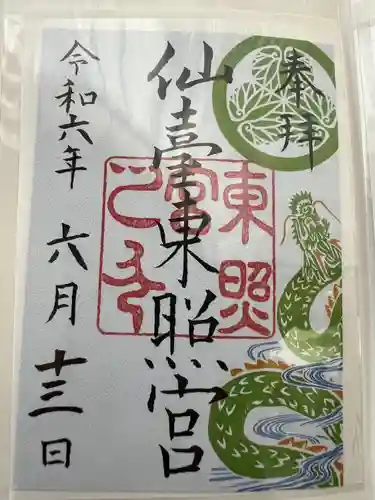 奉拝
仙臺東照宮
東照宮
令和六年 六月十三日